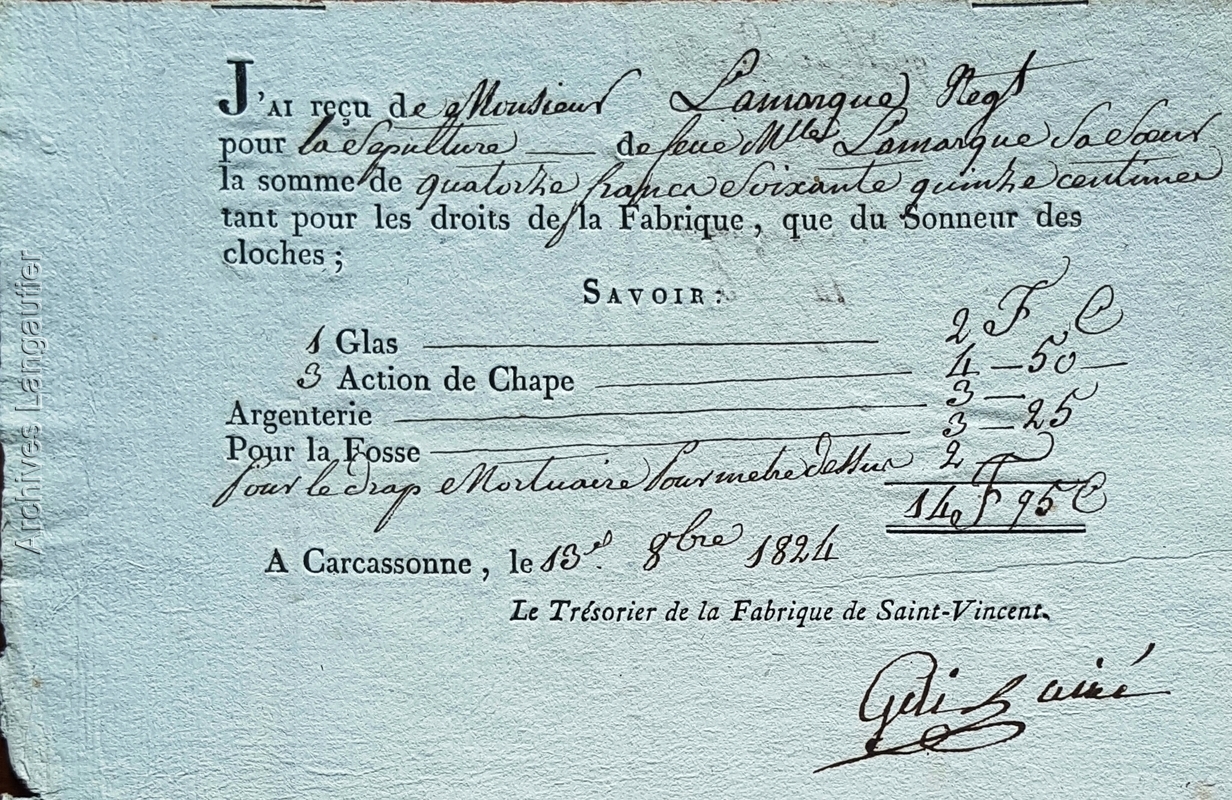 J'AI reçu de Monsieur Lamarque Negt
pour la Sepulture de feue Mlle Lamarque Sa Soeur
la somme de quatorze francs Soixante quinze centimes
tant pour les droits de la Fabrique, que du Sonneur des
cloches ;
SAVOIR :
F C
1 Glas 2
3 Action de Chape 4 — 50 —
Argenterie 3 —
Pour la Fosse 3 — 25
Pour le drap Mortuaire Pour metre dessus 2
14 F 95 C
A Carcassonne, le 13e 8bre 1824
Le Trésorier de la Fabrique de Saint-Vincent.
ainé
Archives Langautier